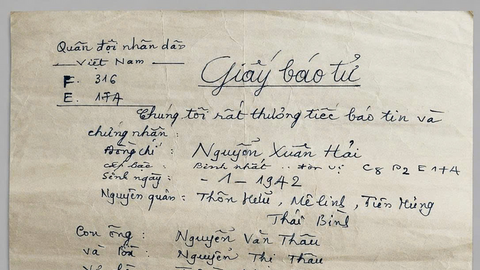 Quân đội nhân dân
Việt Nam
F. 316
E. 174
Giấy báo tử
Chúng tôi rất thương tiếc báo tin và
chứng nhận:
Đồng chí: Nguyễn Xuân Hải
Cấp bậc: Binh nhất .. đơn vị C8 P2 E174
Sinh ngày: - 1 - 1942
Nguyên quán: Thôn Hữu, Mê Linh, Tiên Hưng
Thái Bình
Con ông: Nguyễn Văn Thâu
và Bà: Nguyễn Thị Thâu